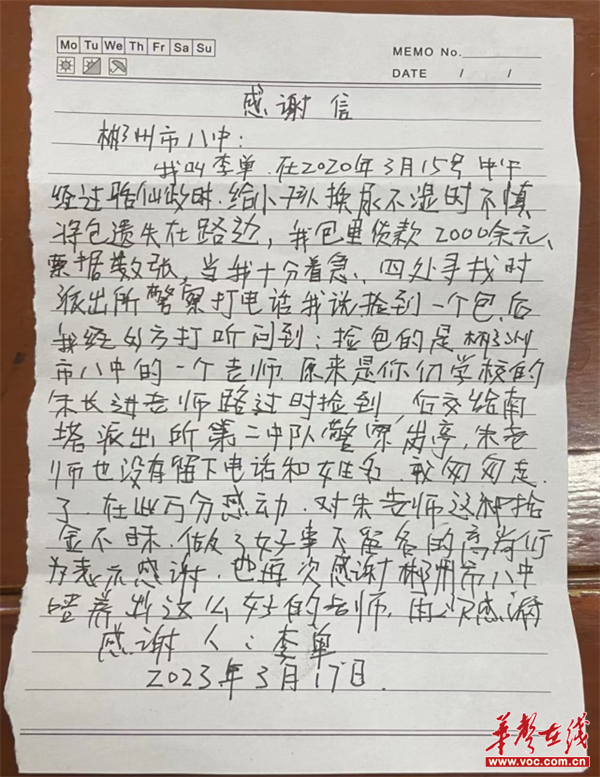 Mo Tu We Th Fr Sa Su
MEMO No.
DATE / /
感谢信
郴州市八中：
我叫李单.在2020年3月15号中午
经过 仙 时.给小孩换尿不湿时不慎
将包遗失在路边，我包里货款2000余元、
票据数张，当我十分着急、四处寻找时
派出所警察打电话我说捡到一个包.后
我经多方打听问到：捡包的是郴州
市八中的一个老师.原来是你们学校的
朱长进老师路过时捡到 后交给南
塔派出所第二中队警察岗亭，朱老
师也没有留下电话和姓名 就匆匆走
了.在此万分感动.对朱老师这种拾
金不昧.做了好事不留名的高尚
为表示感谢.也再次感谢郴州市八中
培养出这么好的老师.由 感谢
感谢人：李单
2023年3月17日.
华声在线
www.voc.com.cn